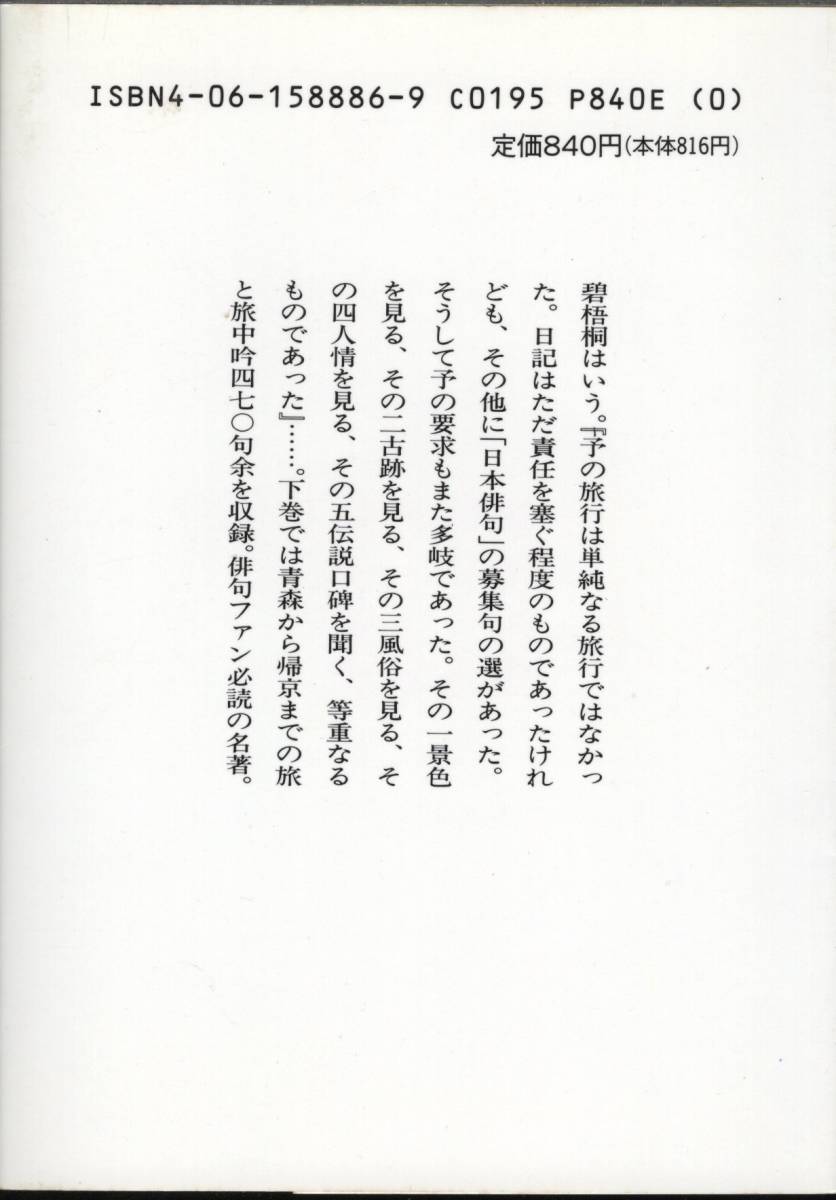 ISBN4-06-158886-9 C0195 P840E (0)
定価840円(本体816円)
碧梧桐はいう。『予の旅行は単純なる旅行ではなかっ
た。日記はただ責任を塞ぐ程度のものであったけれ
ども、その他に「日本俳句」の募集句の選があった。
そうして予の要求もまた多岐であった。その一景色
を見る、その二古跡を見る、その三風俗を見る、そ
の四人情を見る、その五伝説口碑を聞く、等重なる
ものであった』……。下巻では青森から帰京までの旅
と旅中吟四七〇句余を収録。俳句ファン必読の名著。